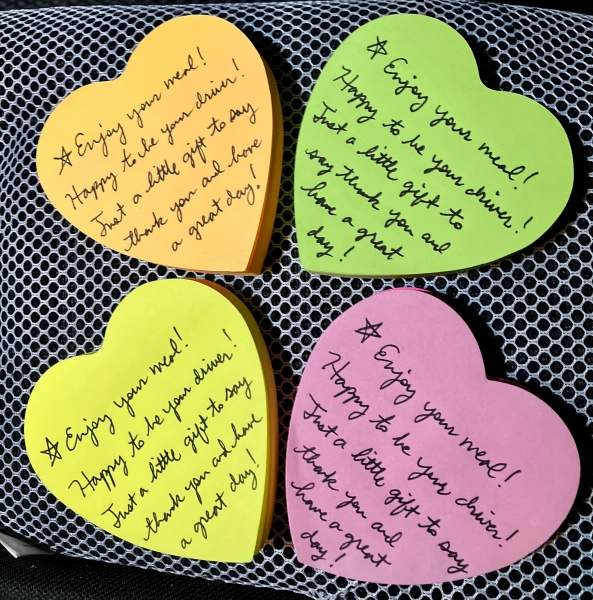 ☆ Enjoy your meal!
Happy to be your driver!
Just a little gift to say
thank you and have
a great day!
☆ Enjoy your meal!
Happy to be your driver!
Just a little gift to
say thank you and
have a great
day!
☆ Enjoy your meal!
Happy to be your driver!
Just a little gift to say
thank you and have
a great day!
☆ Enjoy your meal!
Happy to be your driver!
Just a little gift to say
thank you and
have a great
day!